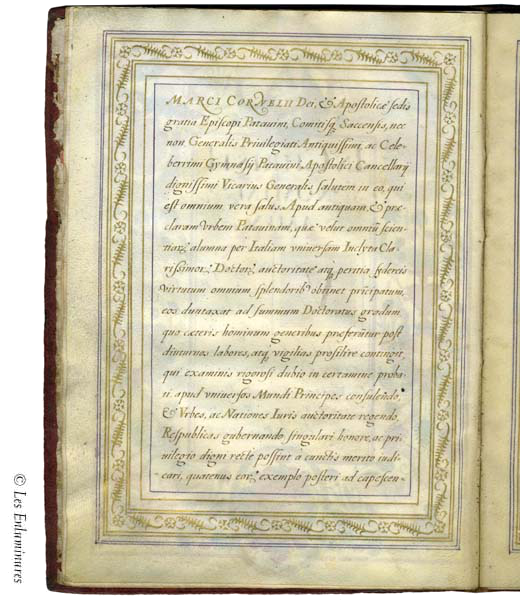 MARCI CORNELII Dei, & Apostolicæ sedis
gratia Episcopi Patavini, Comitisq; Saccensis, nec
non Generalis Priuilegiati Antiquissimi, ac Cele-
berrimi Gymnasij Patauini Apostolici Cancellarij
dignissimi Vicarius Generalis salutem in eo, qui
est omnium vera salus. Apud antiquam, & præ
claram Vrbem Patauinam, quæ velut omniũ scien-
tiarꝝ alumna per Italiam vniuersam Inclyta Cla-
rissimorꝝ Doctorꝝ auctoritate atq; peritia fœderis
virtutum omnium splendoribꝰ obtinet prīcipatum,
eos duntaxat ad summum Doctoratus gradum,
quo cæteris hominum generibus præferũtur post
diuturnos labores, atq; vigilias prosilire contingit,
qui examinis rigorosi dubio in certamine proba-
ti. apud vniuersos Mundi Principes consulēdo,
& Vrbes, ac Nationes Iuris auctoritate regendo,
Respublicas gubernando singulari honore, ac pri-
uilegio digni recte possint a cunctis merito iudi-
cari, quatenus eorꝝ exemplo posteri ad capescen-
© Les Enluminures